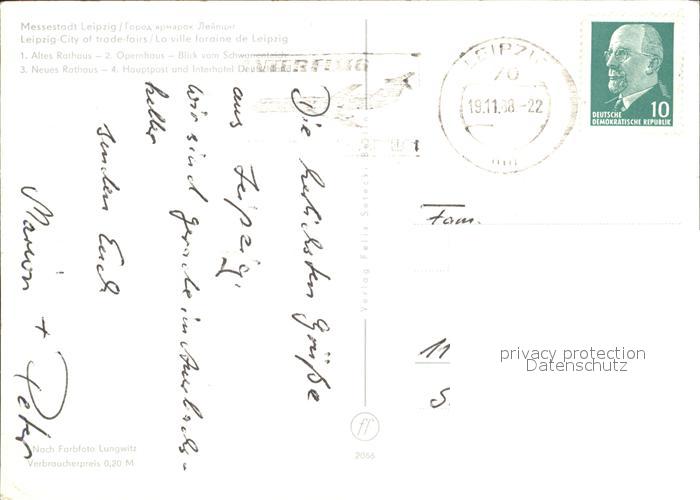 Messestadt Leipzig / Город ярмарок Лейпциг
Leipzig-City of trade-fairs / La ville foraine de Leipzig
1. Altes Rathaus – 2. Opernhaus – Blick vom Schwanenteich
3. Neues Rathaus – 4. Hauptpost und Interhotel Deutschland
INTERFLUG
LEIPZIG
70
19.11.68 -22
10
DEUTSCHE
DEMOKRATISCHE REPUBLIK
Die herzlichsten Grüße
aus Leipzig.
Wir sind gerade in Auerbachs-
keller
senden Euch
Marion + Peter
Verlag Felix Setecki, Berlin
Fam.
11
S
privacy protection
Datenschutz
ff
2066
Nach Farbfoto Lungwitz
Verbraucherpreis 0,20 M